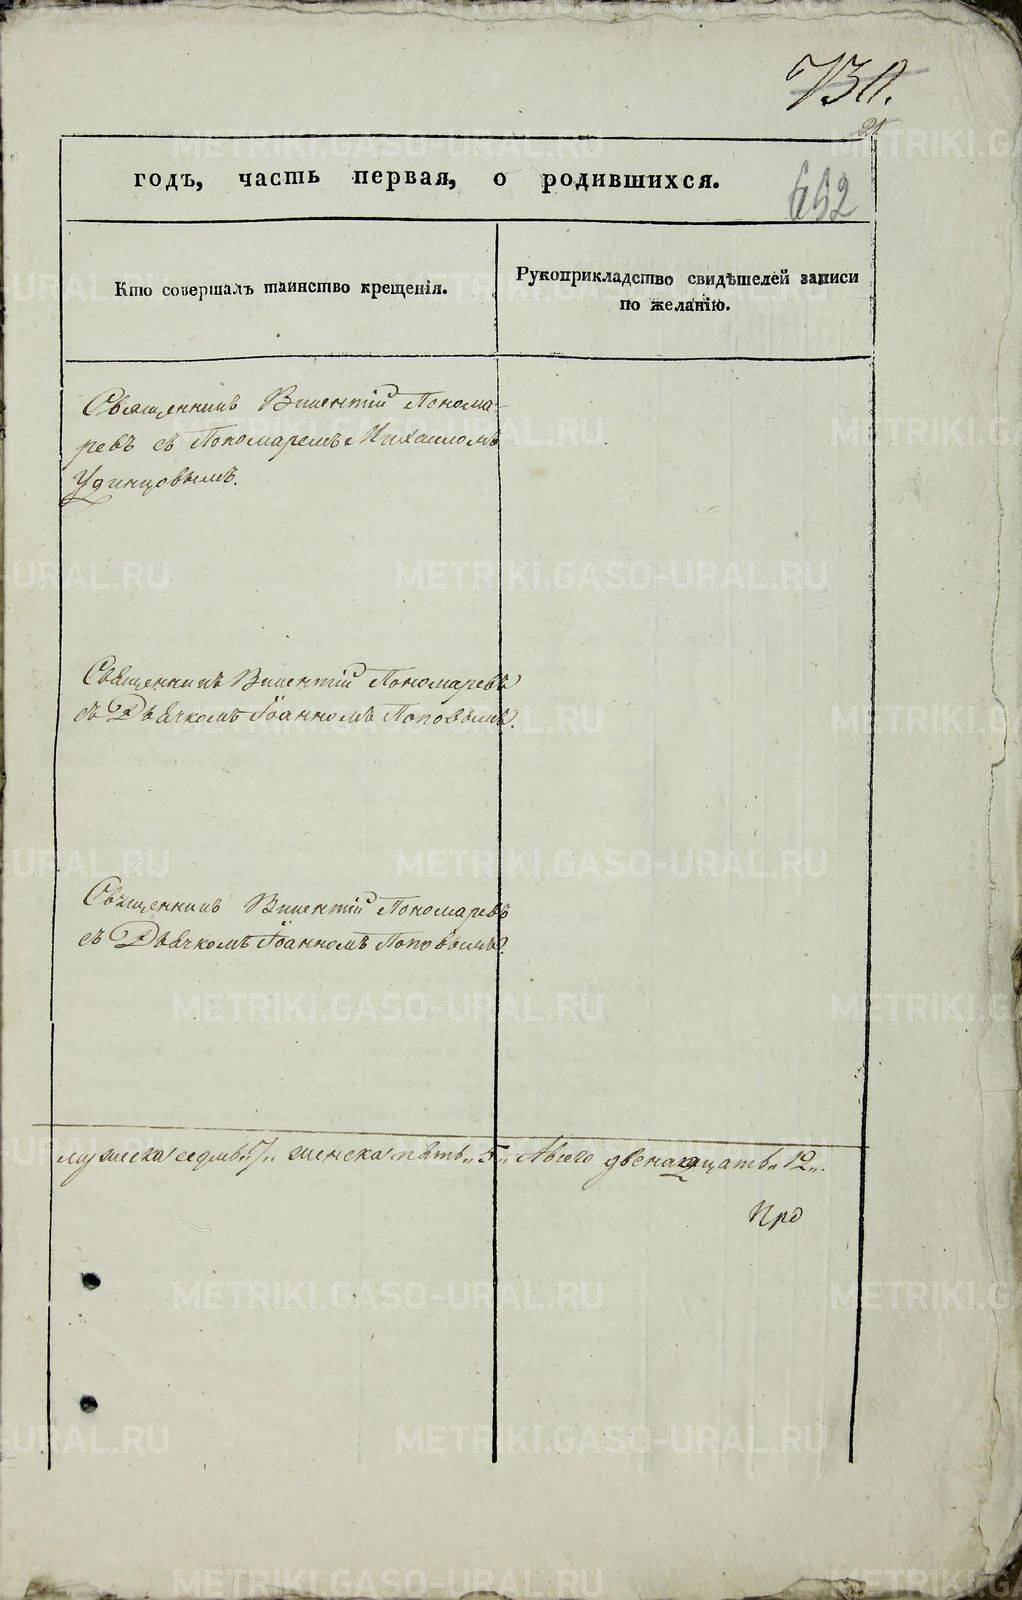 730.
21
годъ, часть первая, о родившихся.
652
Кто совершалъ таинство крещенія.
Рукоприкладство свидѣтелей записи
по желанію.
Священникъ Викентій Понома-
ревъ съ Пономаремъ Михаиломъ
Удинцовымъ.
Священникъ Викентій Пономаревъ
съ Дьячкомъ Іоанномъ Поповымъ.
Священникъ Викентій Пономаревъ
съ Дьячкомъ Іоанномъ Поповымъ.
мужеска седмь „7„ женска пять „5„ А всего двенадцать „12„.
METRIKI.GASO-URAL.RU